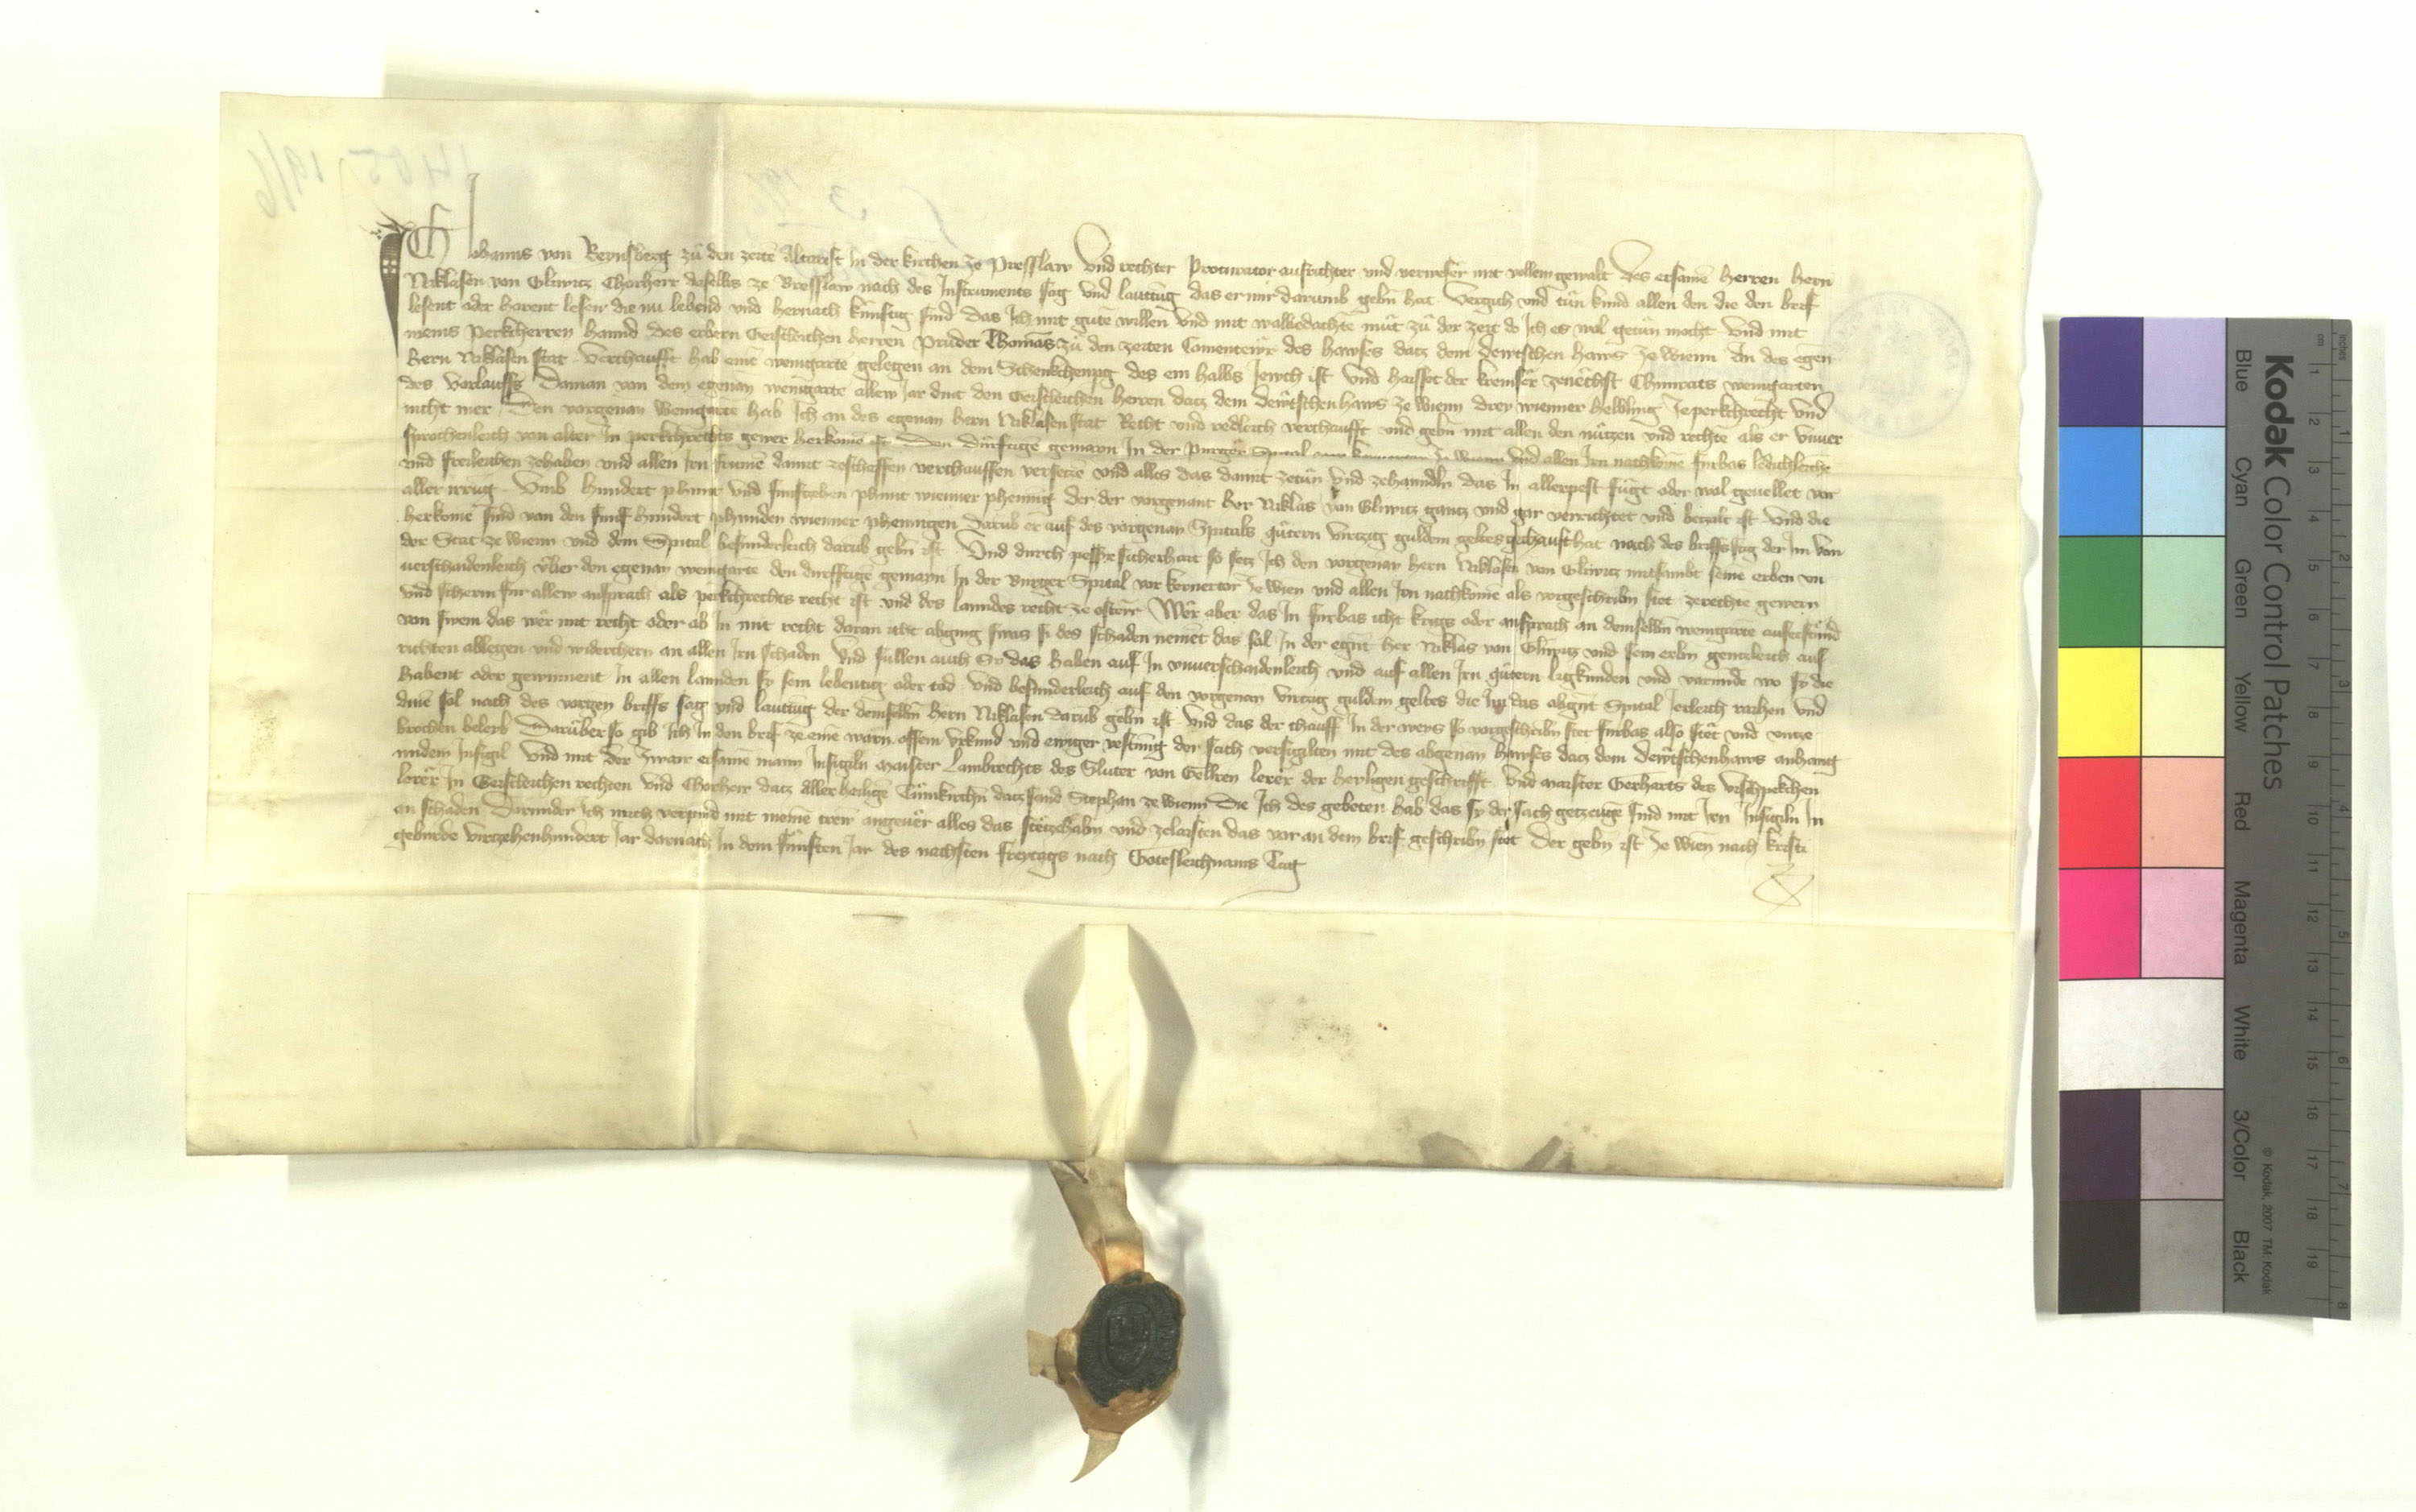 Ich Johanns von Reynsberg zu den zeiten Altarist In der kirchen ze Presslaw Vnd rechter Procurator ausrichter vnd verweser mit vollem gewalt des ersamen Herren Hern
Niklasen von Gliwicz Chorherr daselbs ze Bresslaw nach des Instruments sag vnd lautung das er mir darumb gebn hat Vergich vnd tun kund allen den die den brif
lesent oder horent lesen die nu lebend vnd hernach kunftig sind das Ich mit gute willen vnd mit wolbedachte mut zu der zeit do Ich es wol getun mocht vnd mit
meins Perkcherren hannd des erbern Geistleichen Herren Pruder Thomas zu den zeiten Comentewr des hawses datz dem dewtschen haws ze wienn An des egen
Hern Niklasen stat Verchaufft hab eine weingarte gelegen an dem Schenkchenpg des ein halbs Jewch ist vnd haisset der kremser zenechst Chunrats weingarten
des Vorlauffs Daman von dem egenan weingarte allew Jar dint den Geistleichen herren datz dem dewtschenhaws ze wienn drey wienner helbling ze perkchrecht vnd
nicht mer Den vorgenan weingarte hab Ich an des egenan hern Niklasen stat Recht vnd redleich verchaufft vnd gebn mit allen den nutzen vnd rechte als er vnuer
sprochenleich von alter In perkchrechts gewer herkome ist Den durftige gemayn In der Purger Spital vnd allen Irn nachkome furbas ledichleich
vnd freileichen zehaben vnd allen Irn frumen damit zeschaffen verchauffen versetze vnd alles das damit zetun vnd zehanndln das In allerpest fugt oder wol geuellet vor
aller irrug Vmb hundert phunt vnd funfzehen phunt wienner phennig der der vorgenant Her Niklas von Gliwicz gantz vnd gar verrichtet vnd betzalt ist vnd die
herkome sind von den funf hundert phunden wienner phennigen darub er auf des vorgenan Spitals gutern virtzig guldein geltes gechauft hat nach des briffs sag der Im von
der Stat ze wienn vnd dem Spital besunderleich darub gebn ist Vnd durch pesser sicherhait so setz Ich den vorgenan hern Niklasen von Gliwicz mitsambt seine erben vn
uerschaidenleich vber den egenan weingarte den durfftige gemayn In der Burger Spital vor kernertor ze wien vnd allen Irn nachkome als vorgeschribn stet zerechte gewern
vnd scherm fur allew ansprach als perkchrechts recht ist vnd des lanndes recht ze osterr Wer aber das In furbas icht krigs oder ansprach an demselbn weingarte auferstund
von swem das wer mit recht oder ob In mit recht daran icht abging swas si des schaden nement das sol In der egnt her Niklas von Gliwicz vnd sein erbn gentzleich aus
richten ablegen vnd widerchern an allen Irn schaden Vnd sullen auch Sy das haben auf In vnuerschaidenleich vnd auf allen Irn gutern ligkunden vnd varunde wo sy die
habent oder gewinnent In allen lannden sy sein lebentig oder tod vnd besunderleich auf den vorgenan virtzig guldein geltes die Im das abgnt Spital Jerleich raihen vnd
dine sol nach des vorgen briffs sag vnd lautung der demselbn hern Niklasen darub gebn ist Vnd das der chauff In der weis so vorgeschribn stet furbas also stet vnd vntze
brochen beleyb Daruber so gib Ich In den brif ze eine warn offenn vrkund vnd ewiger vestnug der sach versigilten mit des obgenan hawses datz dem Dewtschenhaws anhang
undem Insigil Vnd mit der zwair ersamen mann Insigiln maister Lambrechts des Sluter von Gellren lerer der heyligen geschrifft Vnd maister Gerharts des vischpekchen
lerer In Geistleichen rechten vnd Chorherr datz Allerheilige Tumkirchn datz sand Stephan ze wienn Die Ich des gebeten hab das sy der sach getzeuge sind mit Irn Insigiln In
an schaden Darunder Ich mich verpind mit meine trew angeuer alles das stetzehabn vnd zelaisten das vor an dem brif geschribn stet Der gebn ist ze wien nach kristi
geburde virtzehenhundert Jar darnach In dem funften Jar des nachsten freytags nach Gotsleichnams Tag
Kodak Color Control Patches
Blue Cyan Green Yellow Red Magenta White 3/Color Black
© Kodak, 2007 TM: Kodak